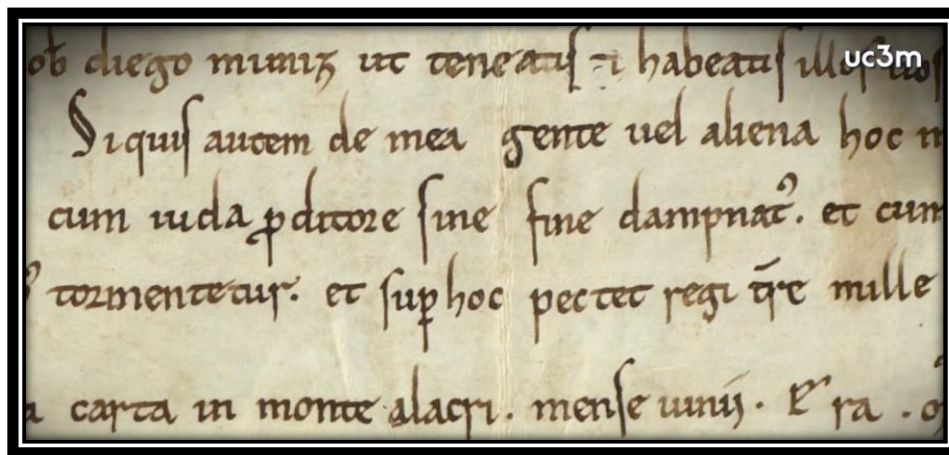 uc3m
ob̄ diego muniz ut teneatis ⁊ habeatis illos
Siquis autem de mea gente uel aliena hoc
cum iuda ꝓditore sine fine dampnat᾽. et cum
tormentetur. et suꝑ hoc pectet regi tr̄e mille
a carta in monte alacri. mense iunii. Era .